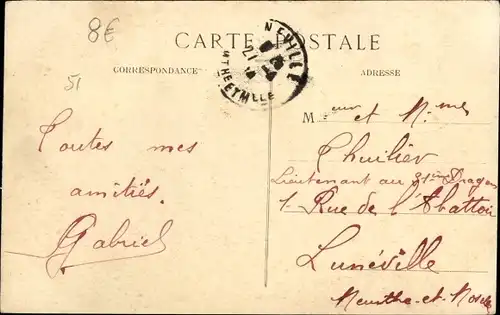 8€
CARTE POSTALE
CORRESPONDANCE
ADRESSE
51
Toutes mes
amitiés.
Gabriel
Mʳ et Mᵐᵉ
Thuilier
Lieutenant au 31ème Dragon
1 Rue de l'Abattoir
Lunéville
Meurthe-et-Moselle